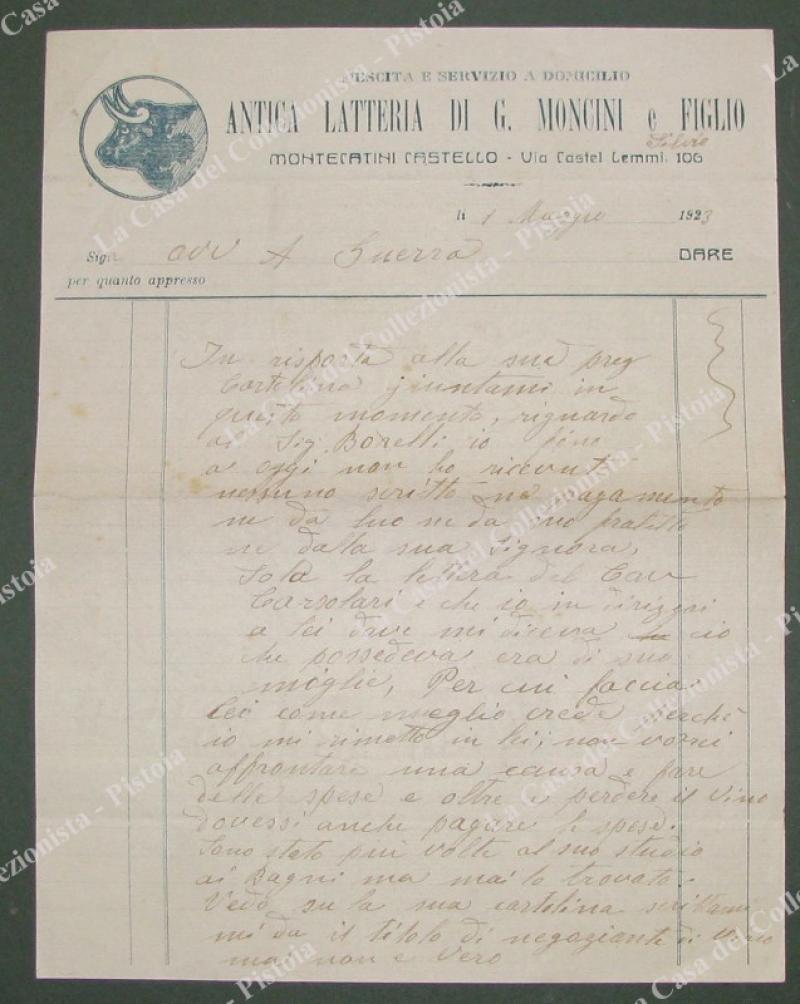 MESCITA E SERVIZIO A DOMICILIO
ANTICA LATTERIA DI G. MONCINI e FIGLIO
Silvio
MONTECATINI CASTELLO - Via Castel Lemmi. 106
li 1 Maggio 1923
Sigr avv A Guerra DARE
per quanto appresso
In risposta alla sua preg
Cartolina giuntami in
questo momento, riguardo
al Sig Borelli io fino
a oggi non ho ricevut
nessuno scritto ne pagamento
ne da luo ne da suo fratello
ne dalla sua Signora,
Sola la lettera del Cav
Carsolari e che io in dirizzai
a lei dove mi diceva cio
che possedeva era di sua
moglie, Per cui faccia
lei come meglio crede perché
io mi rimetto in lei; non vorrei
affrontare una causa e fare
delle spese e oltre a perdere il vino
dovessi anche pagare le spese.
Sono stato piu volte al suo studio
ai Bagni ma mai lo trovato.
Vedo su la sua cartolina scrittami
mi da il titolo di negoziante di vino
mai non e vero
La Casa del Collezionista - Pistoia